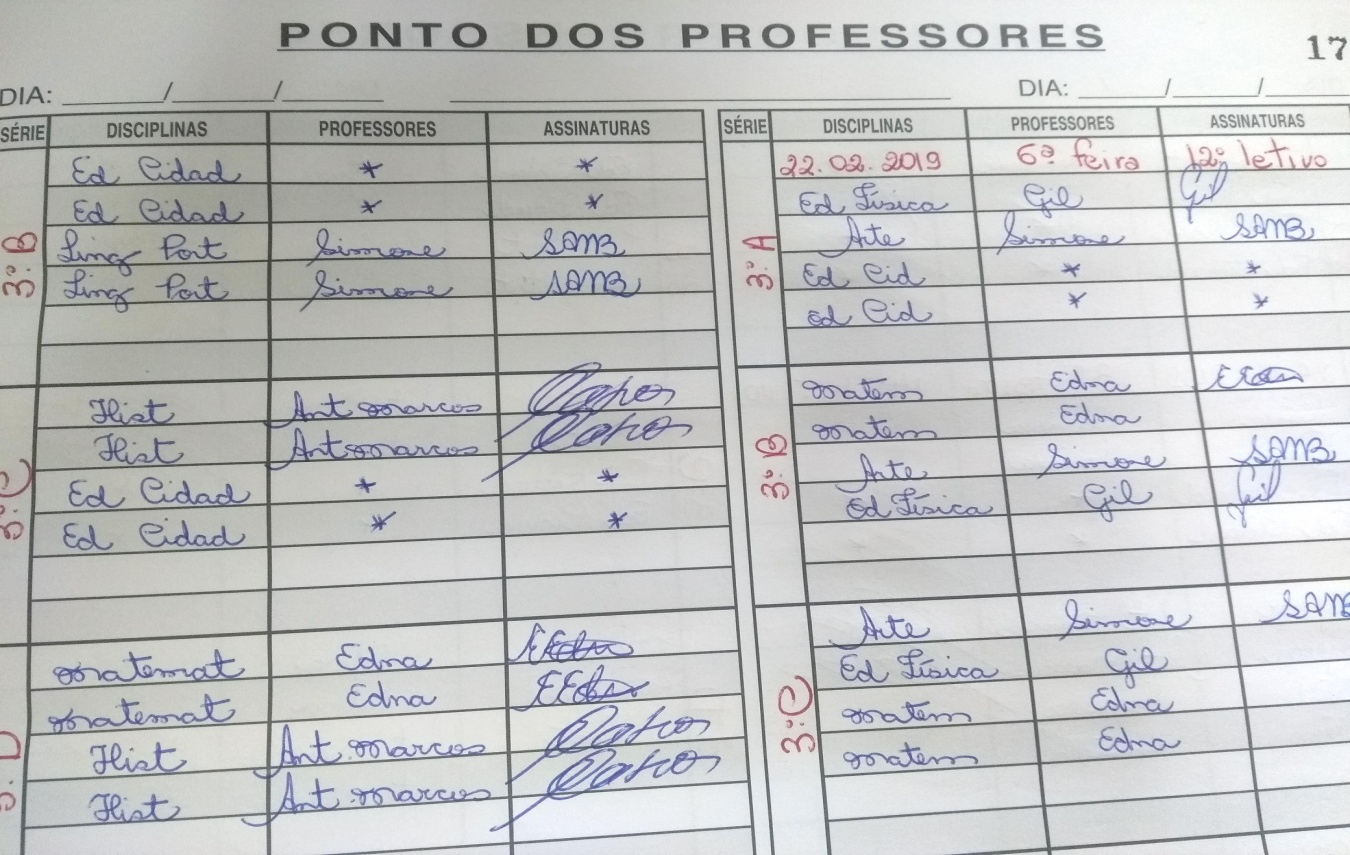 PONTO DOS PROFESSORES
17
DIA: ____/____/____
DIA: ____/____/____
SÉRIE DISCIPLINAS PROFESSORES ASSINATURAS
3º B
Ed Cidad * *
Ed Cidad * *
Ling Port Simone SAMB
Ling Port Simone SAMB
3º C
Hist Ant Marcos
Hist Ant Marcos
Ed Cidad * *
Ed Cidad * *
3º D
Matemat Edna
Matemat Edna
Hist Ant. Marcos
Hist Ant. Marcos
SÉRIE DISCIPLINAS PROFESSORES ASSINATURAS
22.02.2019 6ª feira 12º letivo
3º A
Ed Física Gil Gil
Arte Simone SAMB
Ed Cid * *
Ed Cid * *
3º B
Matem Edna
Matem Edna
Arte Simone SAMB
Ed Física Gil Gil
3º C
Arte Simone SAMB
Ed Física Gil
Matem Edna
Matem Edna